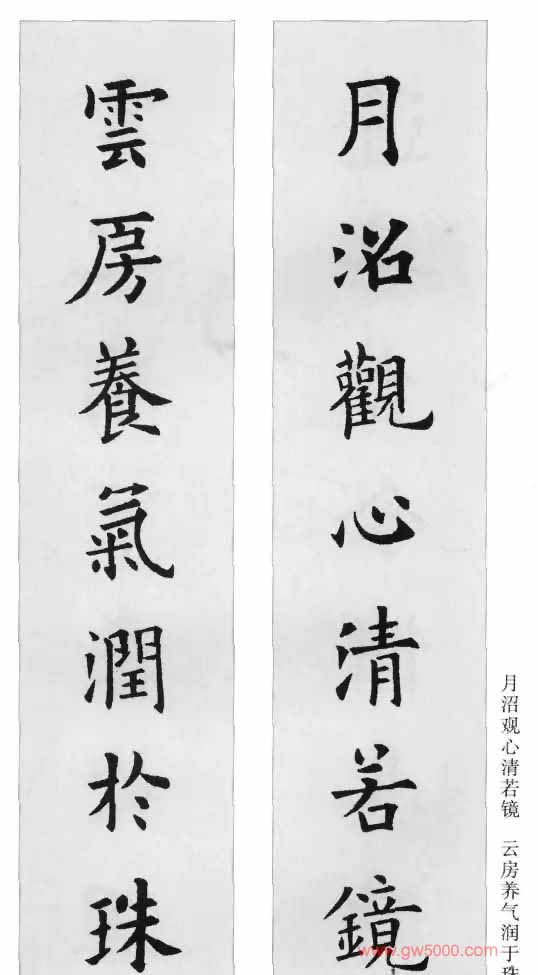 月沼觀心清若鏡
雲房養氣潤於珠
月沼观心清若镜 云房养气润于珠
www.gw5000.com